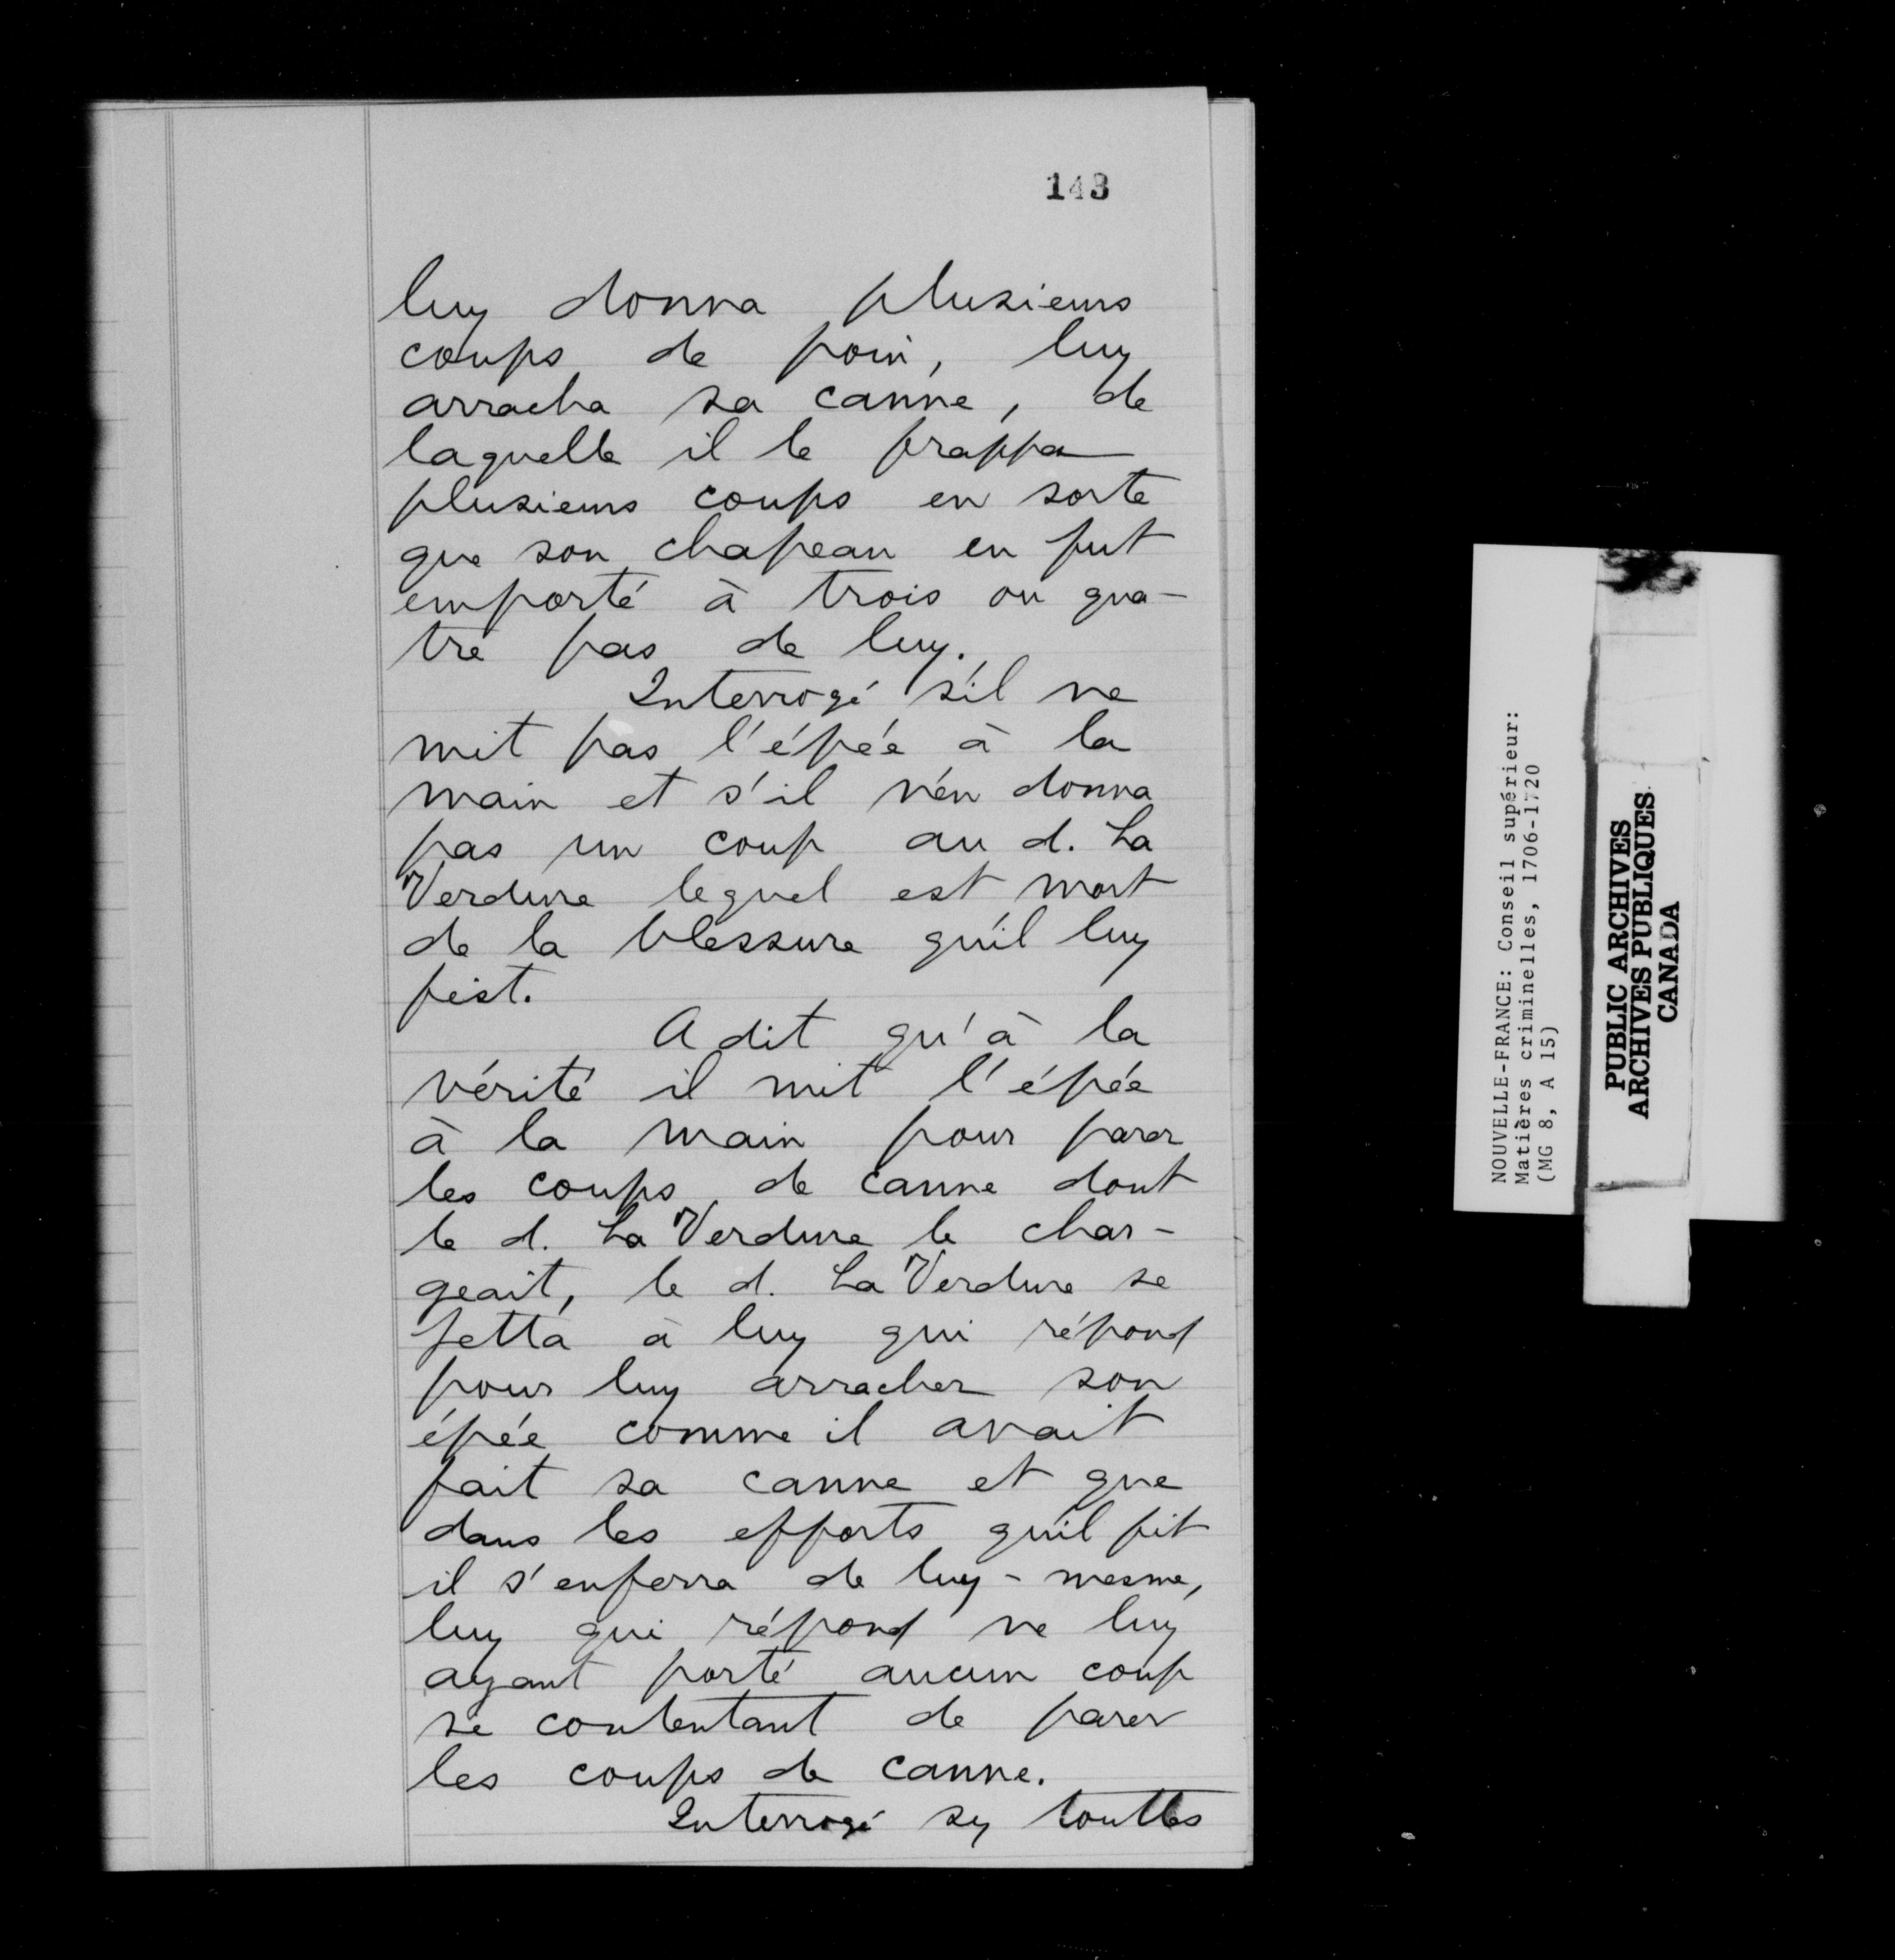 143
luy donna plusieurs
coups de poin, luy
arracha sa canne, de
laquelle il le frappa
plusieurs coups en sorte
que son chapeau en fut
emporté à trois ou qua-
tre pas de luy.
Interrogé s'il ne
mit pas l'épée à la
main et s'il n'en donna
pas un coup au d. La
Verdure lequel est mort
de la blessure qu'il luy
fist.
A dit qu'à la
vérité il mit l'épée
à la main pour parer
les coups de canne dont
le d. La Verdure le char-
geait, le d. La Verdure se
jetta à luy qui répond
pour luy arracher son
épée comme il avait
fait sa canne et que
dans les efforts qu'il fit
il s'enferra de luy-mesme,
luy qui répond ne luy
ayant porté aucun coup
se contentant de parer
les coups de canne.
Interrogé sy touttes
NOUVELLE-FRANCE: Conseil supérieur:
Matières criminelles, 1706-1720
(MG 8, A 15)
PUBLIC ARCHIVES
ARCHIVES PUBLIQUES
CANADA